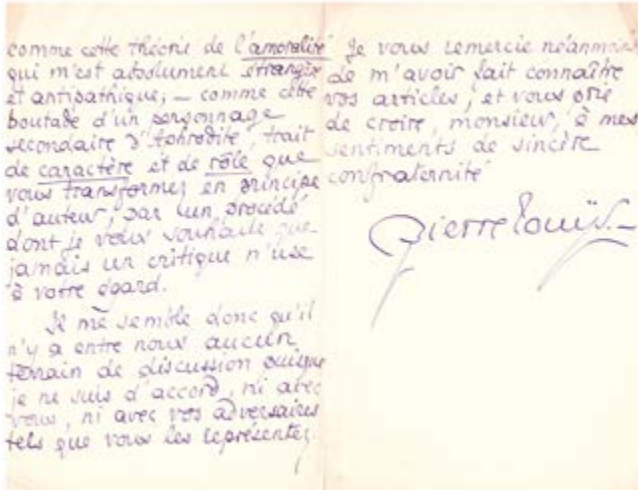 comme cette théorie de l'amoralité
qui m'est absolument étrangère
et antipathique; — comme cette
boutade d'un personnage
secondaire d'Aphrodite, trait
de caractère et de rôle que
vous transformez en principe
d'auteur, par un procédé
dont je vous souhaite que
jamais un critique n'use
à votre égard.
Il me semble donc qu'il
n'y a entre nous aucun
terrain de discussion puisque
je ne suis d'accord, ni avec
vous, ni avec vos adversaires
tels que vous les représentez.
Je vous remercie néanmoins
de m'avoir fait connaître
vos articles, et vous prie
de croire, monsieur, à mes
sentiments de sincère
confraternité
Pierre Louÿs.